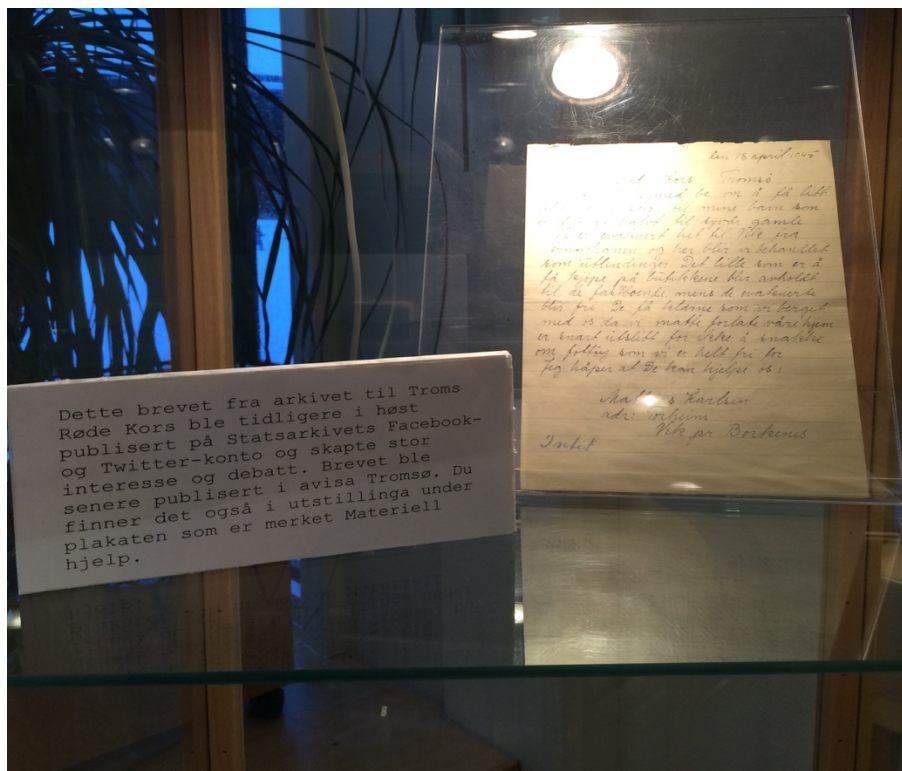 Dette brevet fra arkivet til Troms
Røde Kors ble tidligere i høst
publisert på Statsarkivets Facebook-
og Twitter-konto og skapte stor
interesse og debatt. Brevet ble
senere publisert i avisa Tromsø. Du
finner det også i utstillinga under
plakaten som er merket Materiell
hjelp.
den 18 april 1945
Kors Tromsö
med be om å få litt
til mine barn som
til syvår gamle
er evakuert hit til Vik
og her blir vi behandlet
som utlendinger. Det lille som er å
få kjöpe på butikkene blir avholdt
til de fastboende mens de evakuerte
blir fri. De få klærne som vi berget
med os da vi måtte forlate våre hjem
er snart utslitt for ikke å snakke
om fottöy som vi er helt fri for
Jeg håper at De kan hjelpe os!
Karlsen
adr
Vik pr Borkenes